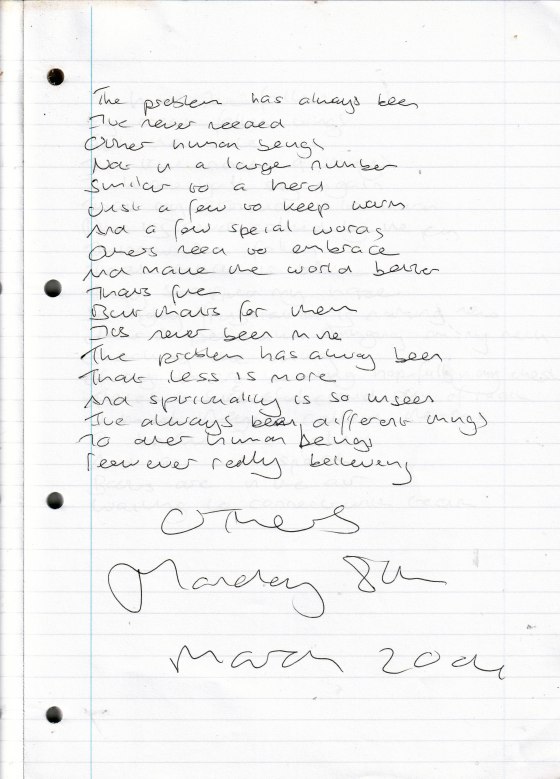 The problem has always been
I've never needed
Other human beings
Not in a large number
Similar to a herd
Just a few to keep warm
And a few special words
Others need to embrace
And make the world better
Thats fine
But thats for them
Its never been mine
The problem has alway been
That less is more
And spirituality is so unseen
I've always been different things
To other human beings
ever really believing
Others
Monday 8th
March 2004